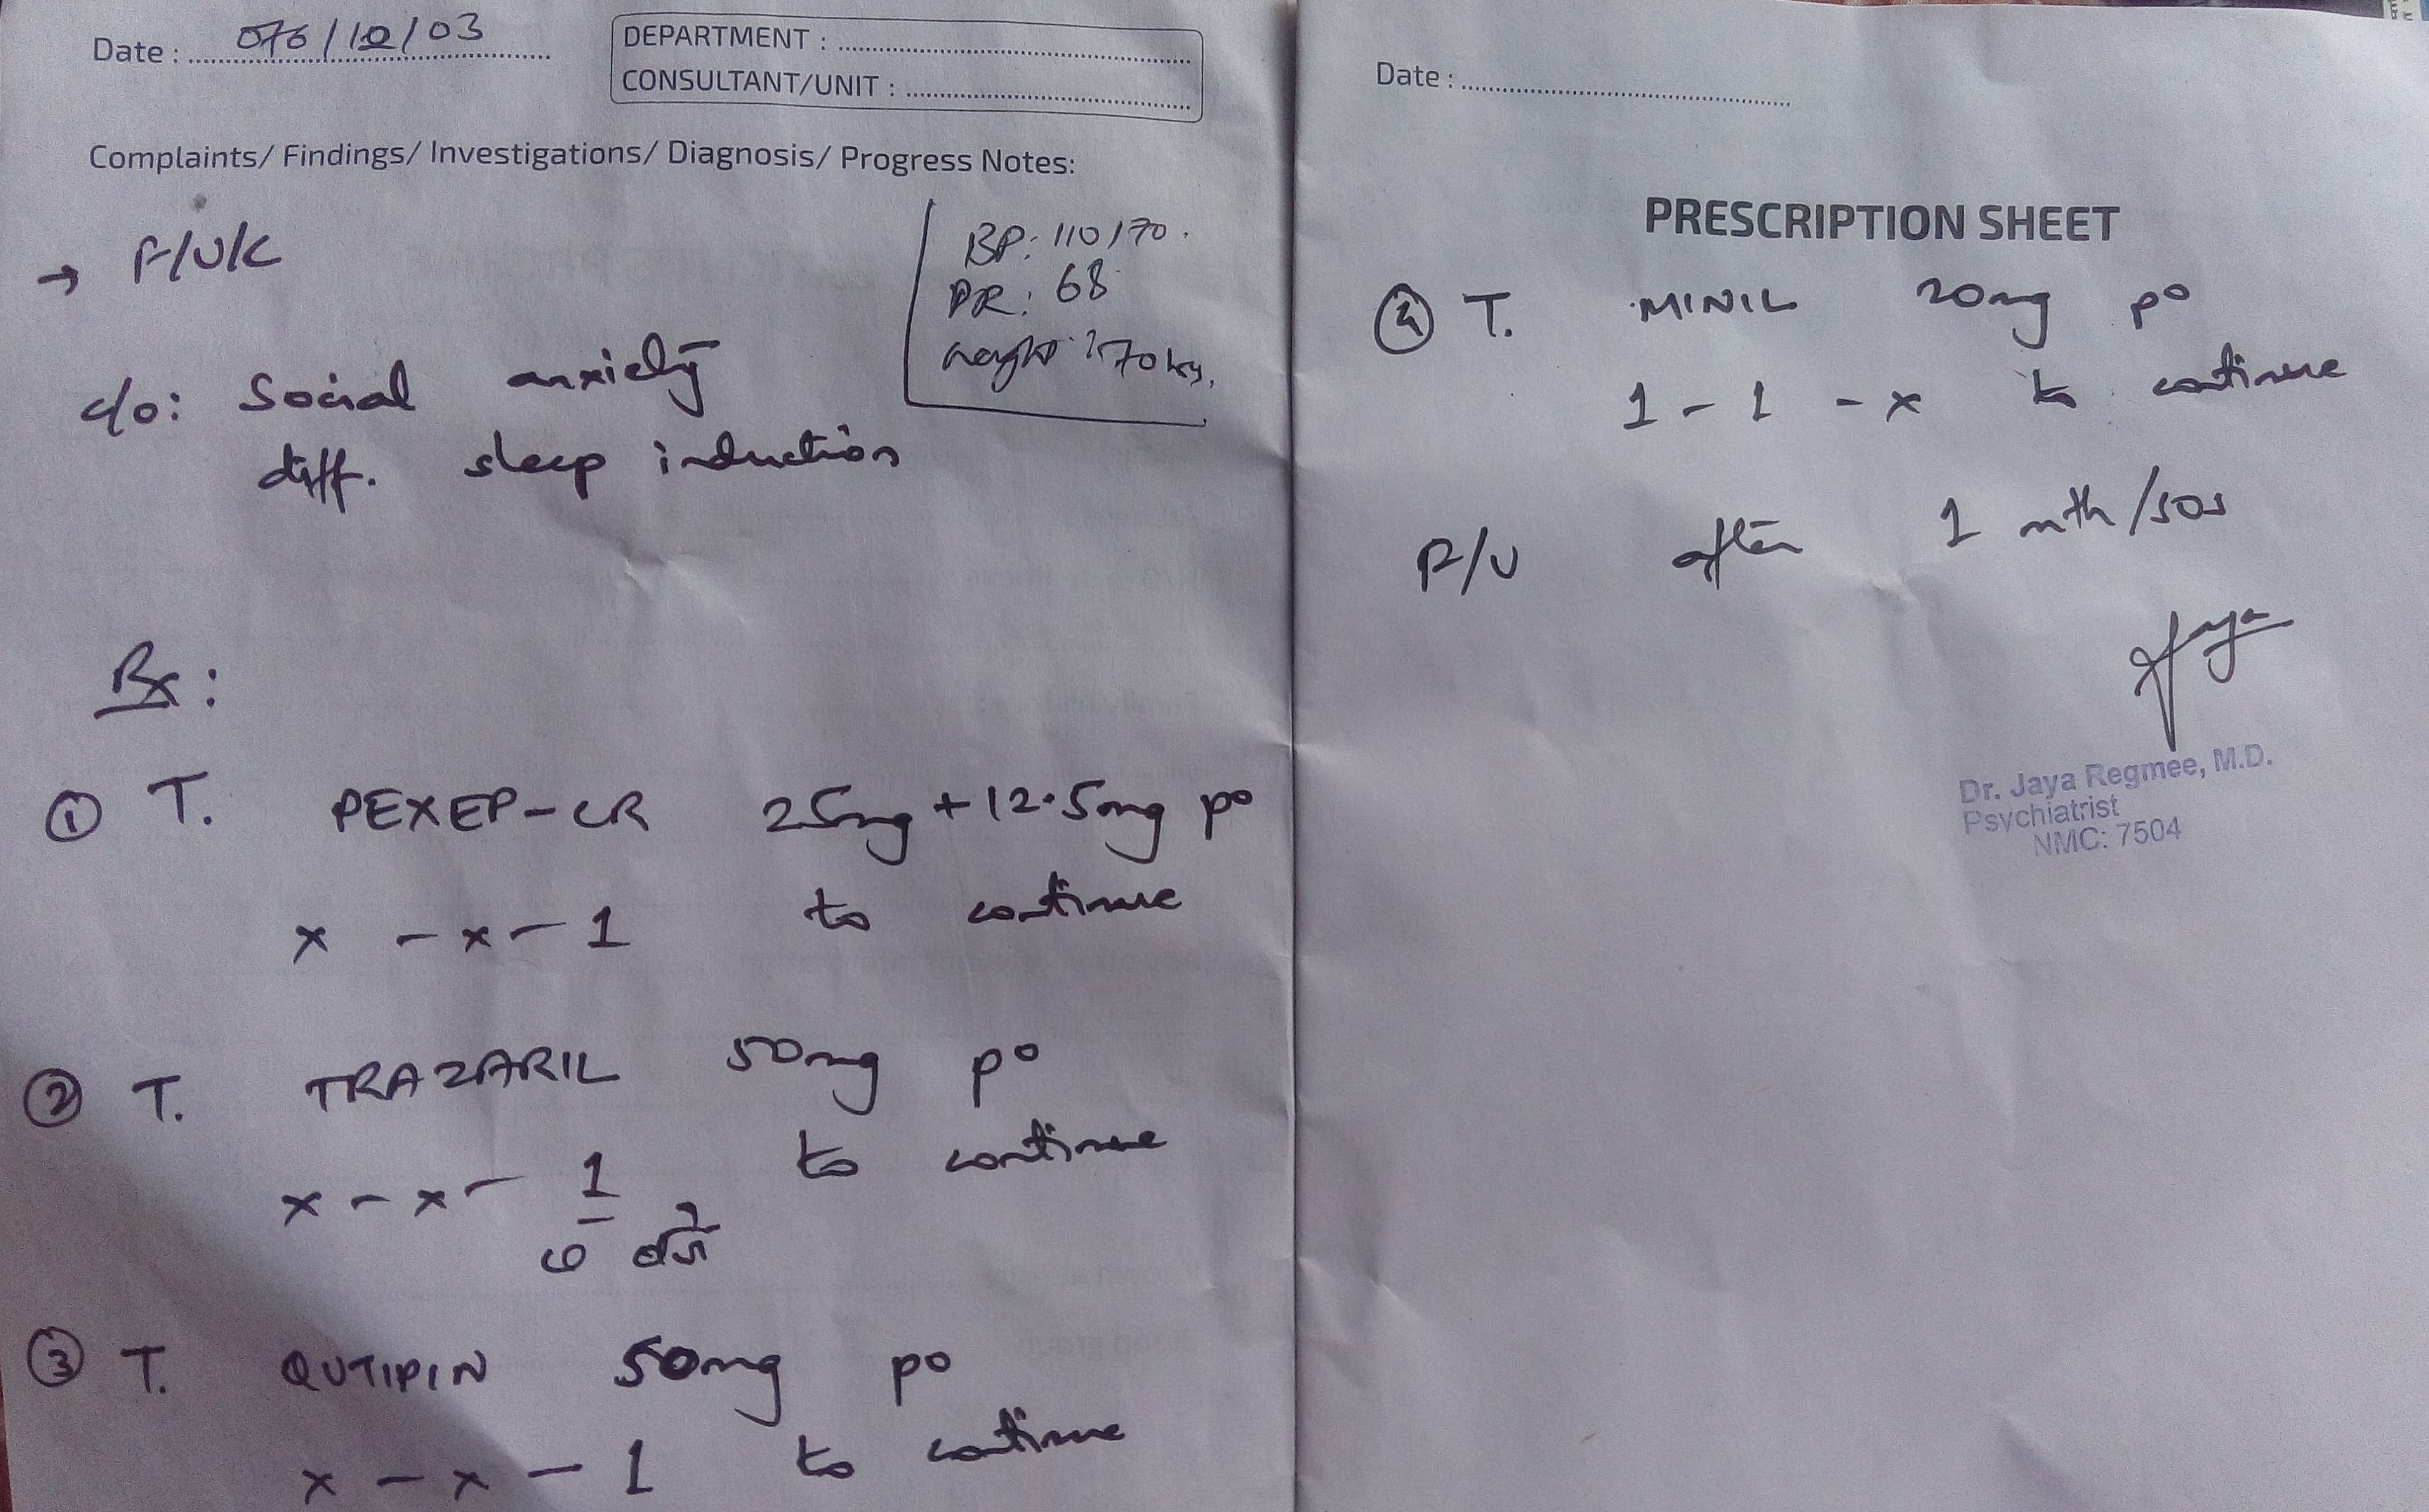 Date : 076/10/03
DEPARTMENT :
CONSULTANT/UNIT :
Complaints/ Findings/ Investigations/ Diagnosis/ Progress Notes:
→ F/U/C
BP: 110/70.
PR: 68
weight: 70 kg.
c/o: Social anxiety
diff. sleep induction
Rx:
① T. PEXEP-CR 25mg + 12.5mg po
x - x - 1 to continue
② T. TRAZARIL 50mg po
x - x - 1 to continue
७ बजे
③ T. QUTIPIN 50mg po
x - x - 1 to continue
Date :
PRESCRIPTION SHEET
④ T. MINIL 20mg po
1 - 1 - x to continue
F/U after 1 mth/sos
Dr. Jaya Regmee, M.D.
Psychiatrist
NMC: 7504